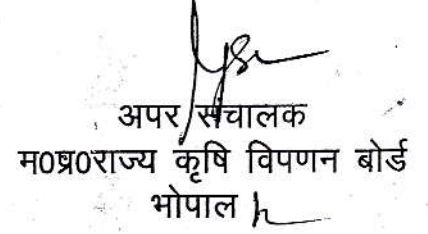 अपर संचालक
म0प्र0राज्य कृषि विपणन बोर्ड
भोपाल